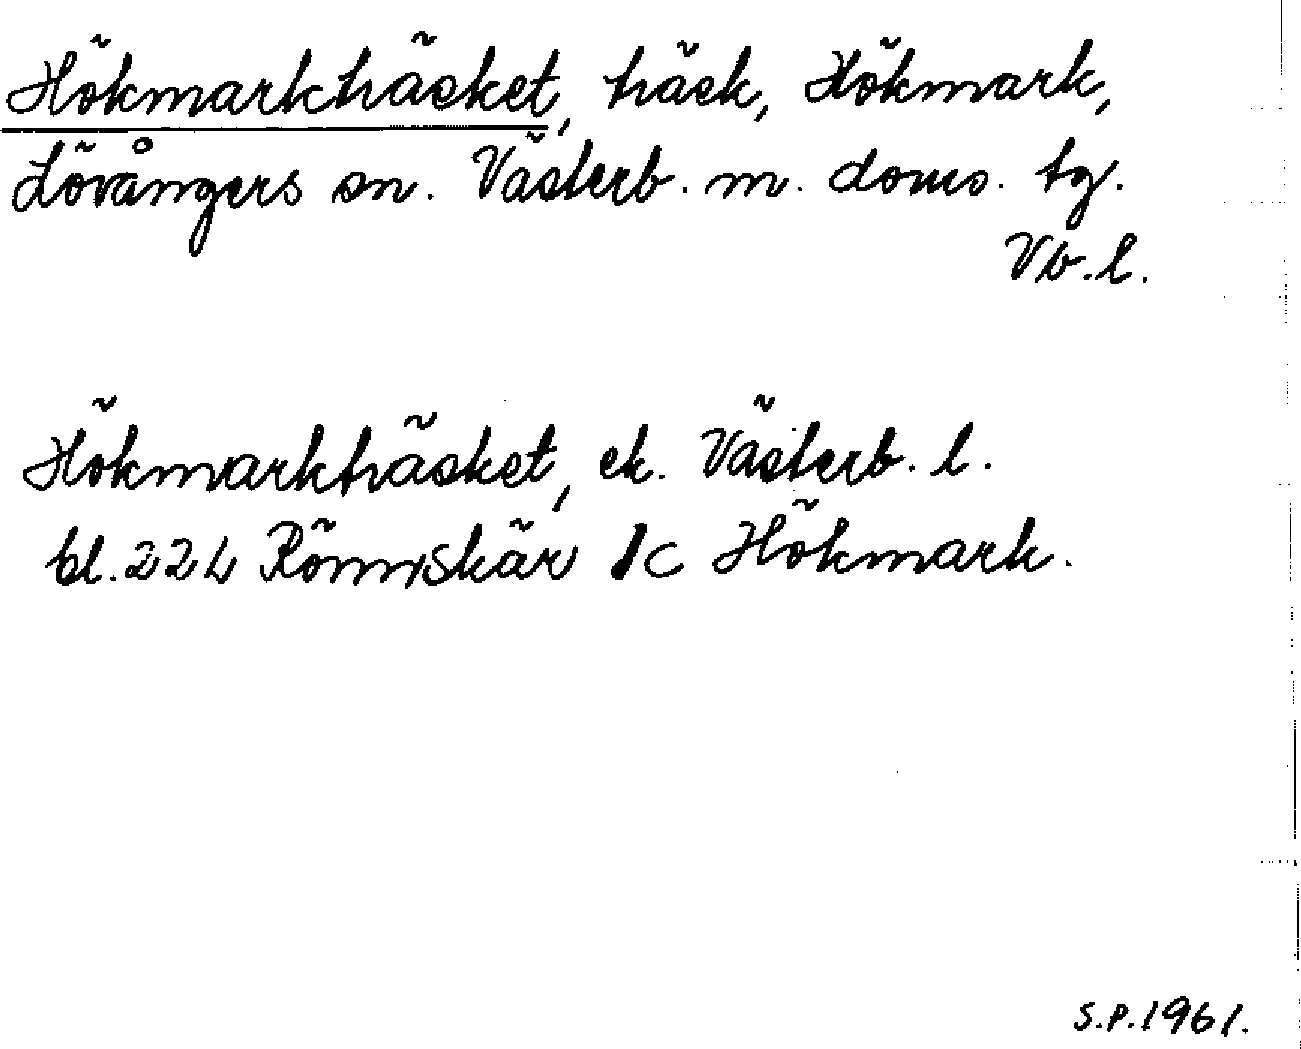 Hökmarkträsket, träsk, Hökmark,
Lövångers sn. Västerb. m. doms. tg.
Vb. l.
Hökmarkträsket, ek. Västerb. l.
bl. 224 Rönnskär 1c Hökmark.
S.P. 1961.